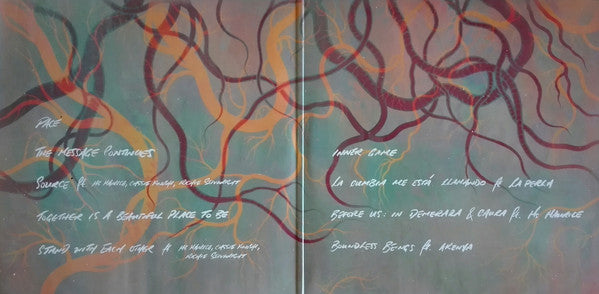 PACE
THE MESSAGE CONTINUES
SOURCE ft. MS MAURICE, CASSIE KINOSHI, RICHIE SEIVWRIGHT
TOGETHER IS A BEAUTIFUL PLACE TO BE
STAND WITH EACH OTHER ft MS MAURICE, CASSIE KINOSHI,
RICHIE SEIVWRIGHT
INNER GAME
LA CUMBIA ME ESTÁ LLAMANDO ft LA PERLA
BEFORE US: IN DEMERARA & CAURA ft. MS MAURICE
BOUNDLESS BEINGS ft. AKENYA